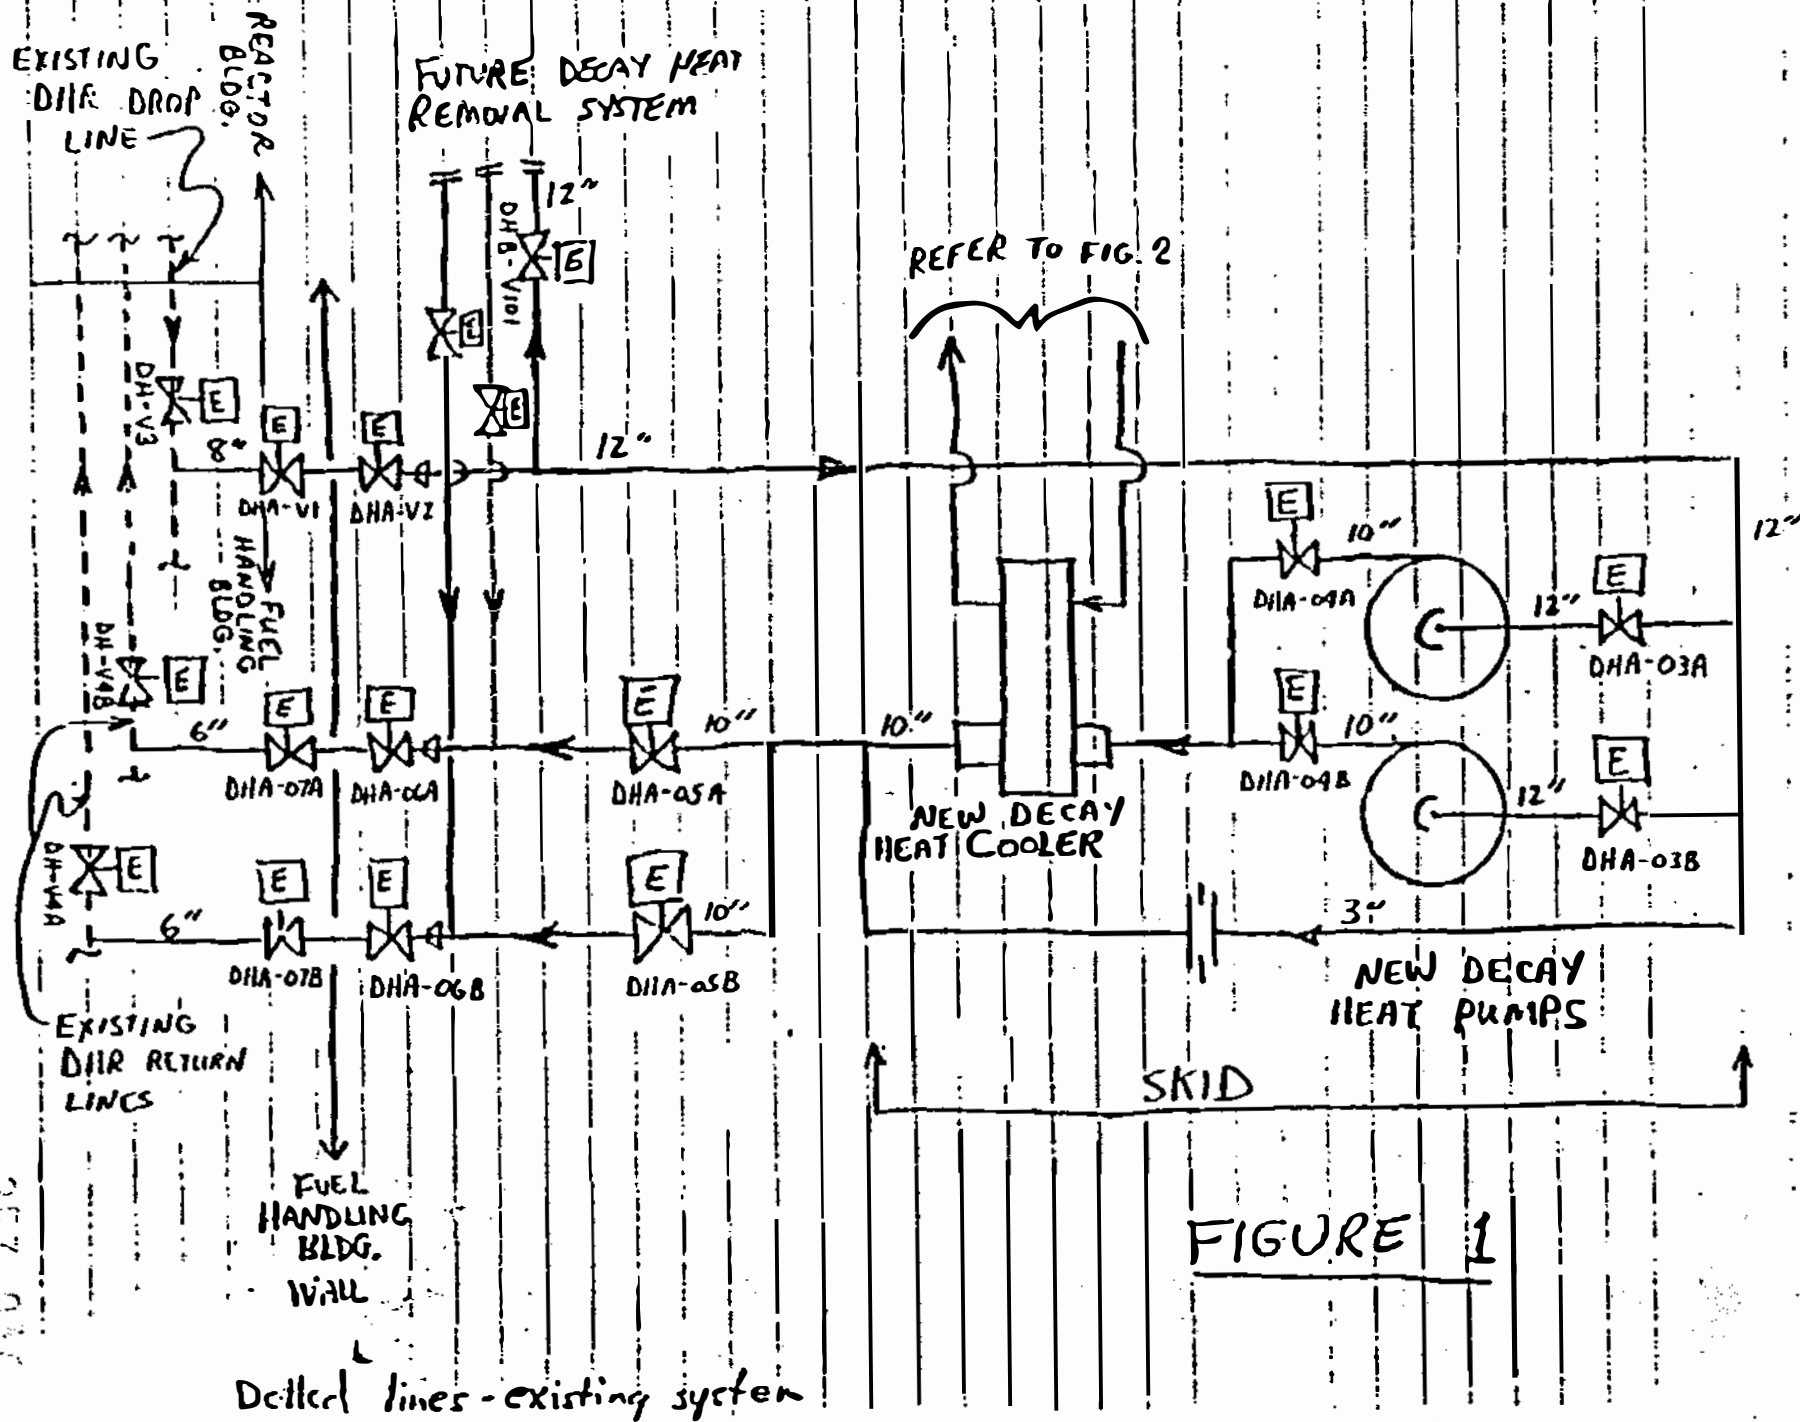 EXISTING
DHR DROP
LINE
REACTOR
BLDG.
FUTURE DECAY HEAT
REMOVAL SYSTEM
12"
DHB-V101
E
E
E
REFER TO FIG. 2
DH-V3
E
8"
E
E
12"
DHA-V1
DHA-V2
12"
FUEL
HANDLING
BLDG.
E
10"
DHA-04A
E
12"
DHA-03A
DH-V4B
E
6"
E
E
E
10"
10"
DHA-07A
DHA-06A
DHA-05A
E
10"
DHA-04B
E
12"
DHA-03B
NEW DECAY
HEAT COOLER
DH-V4A
E
6"
E
E
E
10"
DHA-07B
DHA-06B
DHA-05B
3"
NEW DECAY
HEAT PUMPS
EXISTING
DHR RETURN
LINES
SKID
FUEL
HANDLING
BLDG.
WALL
FIGURE 1
Dotted lines - existing system